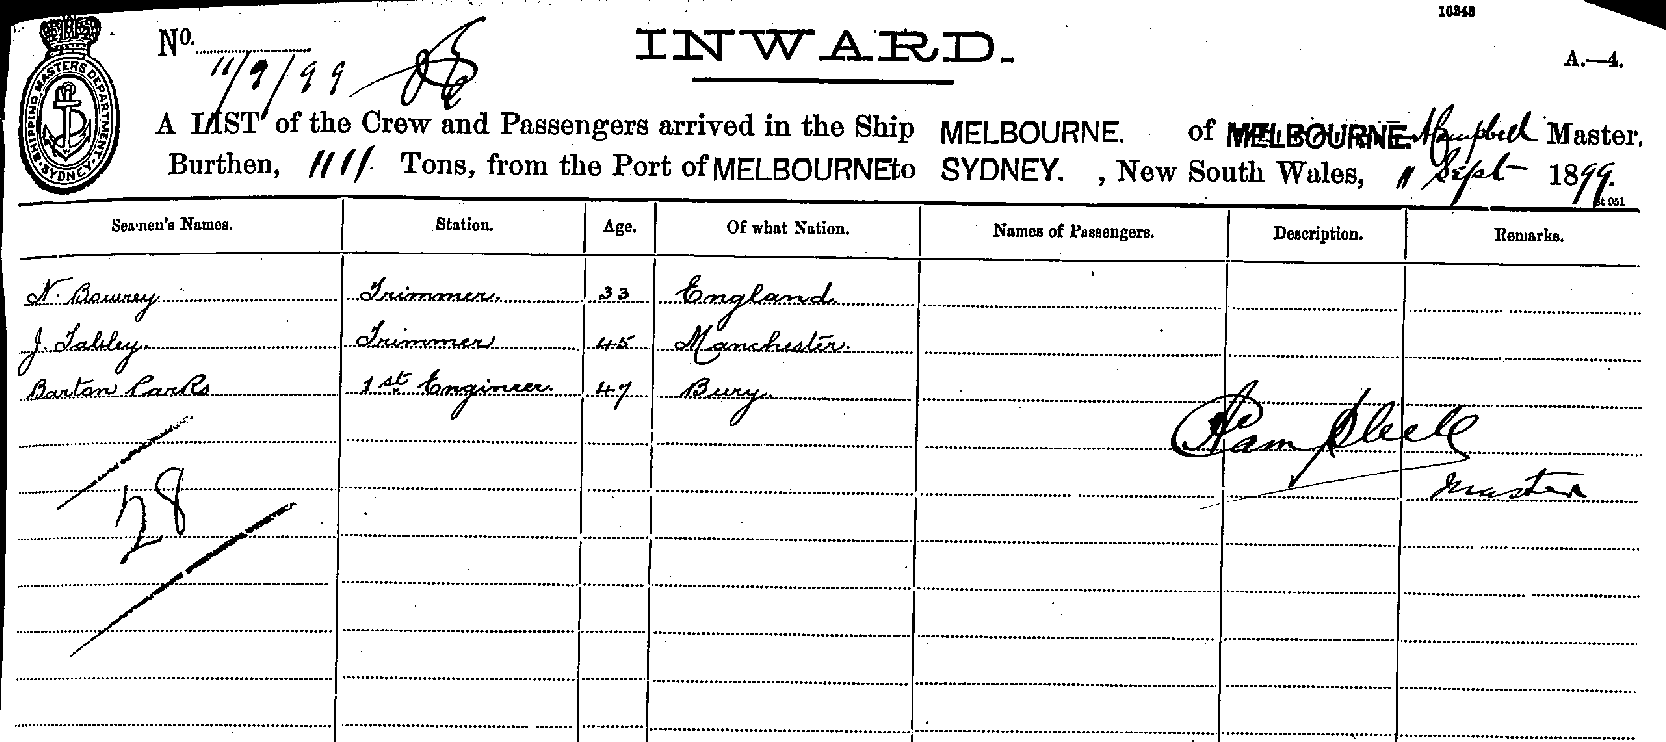 10343
No. 11/9/99
INWARD.
A.—4.
SHIPPING MASTERS DEPARTMENT. SYDNEY.
A LIST of the Crew and Passengers arrived in the Ship MELBOURNE. of MELBOURNE. Campbell Master,
Burthen, 1111 Tons, from the Port of MELBOURNE to SYDNEY. , New South Wales, 11 Sept 1899.
Seamen's Names. Station. Age. Of what Nation. Names of Passengers. Description. Remarks.
N. Bowrey Trimmer. 33 England
J. Tabley. Trimmer 45 Manchester.
Barton Parks 1st Engineer. 47 Bury.
Campbell
Master
28